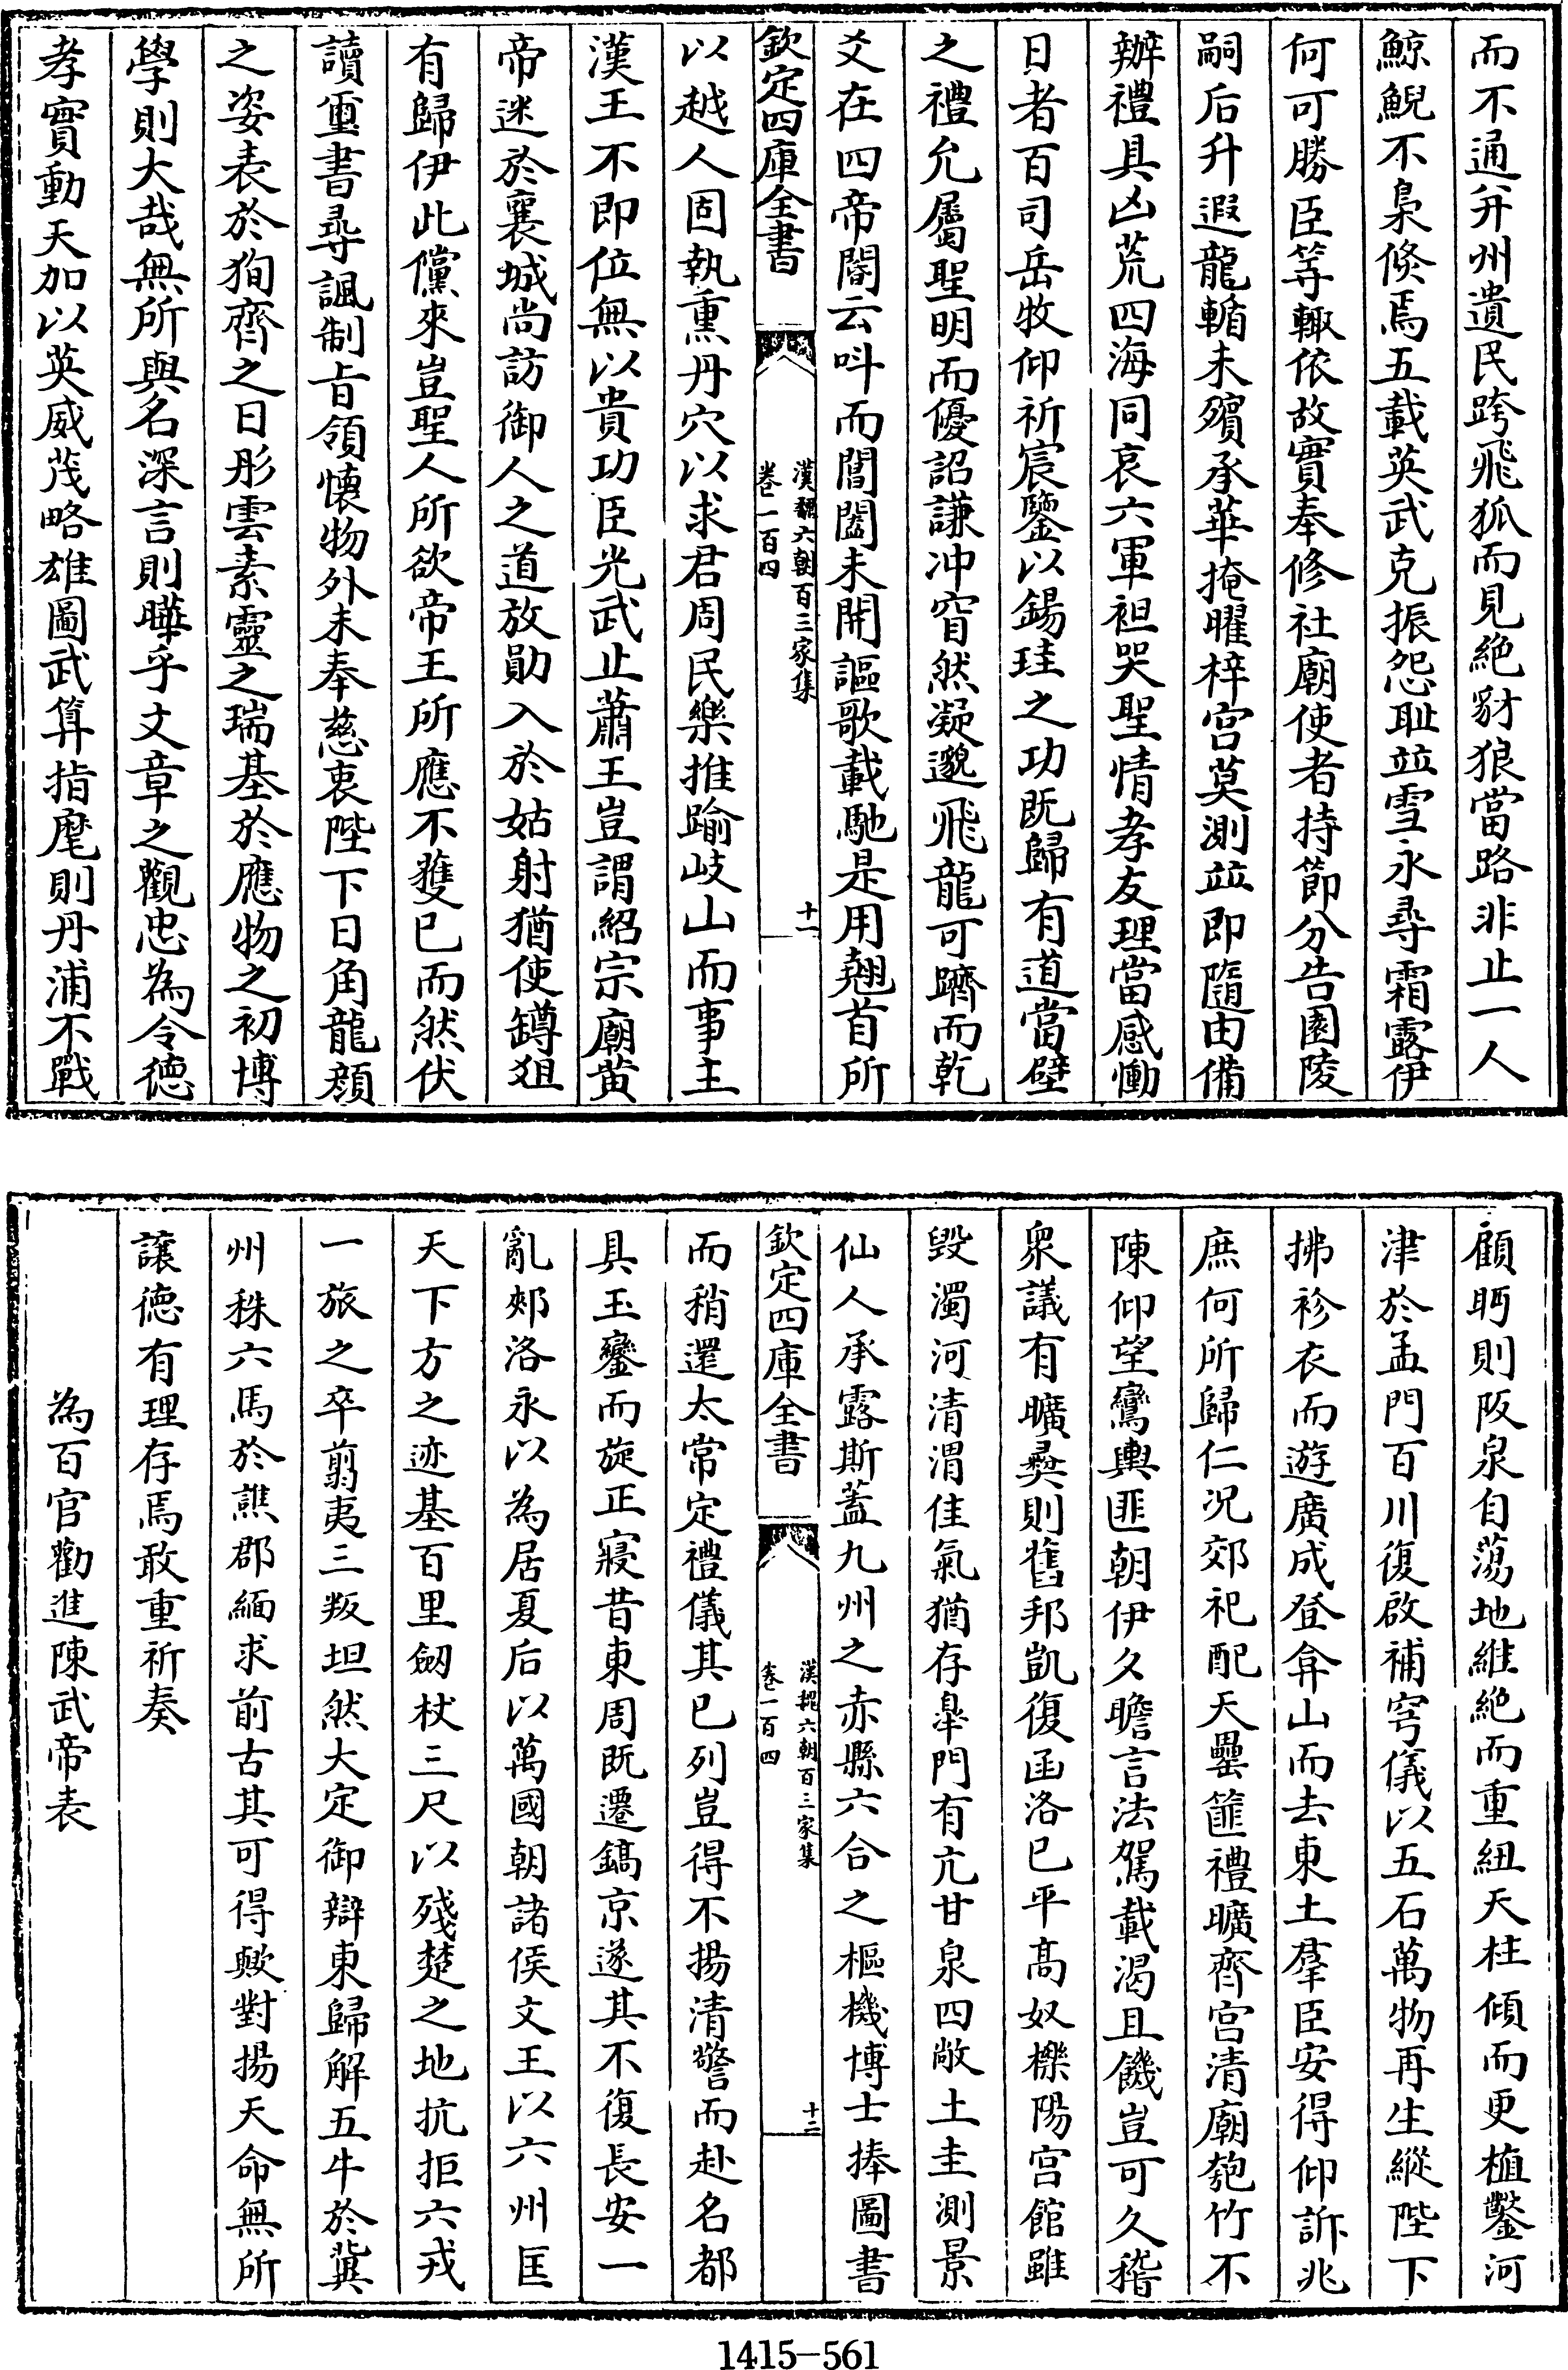 而不通并州遺民跨飛狐而見絶豺狼當路非止一人
鯨鯢不梟倐焉五載英武克振怨恥竝雪永尋霜露伊
何可勝臣等輙依故實奉修社廟使者持節分告園陵
嗣后升遐龍輴未殯承華掩曜梓宫莫測竝即隨由備
辦禮具凶荒四海同哀六軍袒哭聖情孝友理當感慟
日者百司岳牧仰祈宸鑒以錫珪之功既歸有道當璧
之禮允屬聖明而優詔謙冲窅然凝邈飛龍可躋而乾
爻在四帝閽云呌而閶闔未開謳歌載馳是用翹首所
欽定四庫全書
漢魏六朝百三家集
卷一百四
十一
以越人固執熏丹穴以求君周民樂推踰岐山而事主
漢王不即位無以貴功臣光武止蕭王豈謂紹宗廟黄
帝迷於襄城尚訪御人之道放勛入於姑射猶使罇俎
有歸伊此儻來豈聖人所欲帝王所應不獲已而然伏
讀璽書尋諷制㫖領懐物外未奉慈衷陛下日角龍顔
之姿表於狥齊之日彤雲素靈之瑞基於應物之初博
學則大哉無所與名深言則曄乎文章之觀忠為令德
孝實動天加以英威茂略雄圖武算指麾則丹浦不戰
顧眄則阪泉自蕩地維絶而重紐天柱傾而更植鑿河
津於孟門百川復啟補穹儀以五石萬物再生縱陛下
拂袗衣而遊廣成登弇山而去東土羣臣安得仰訴兆
庶何所歸仁况郊祀配天罍篚禮曠齊宫清廟匏竹不
陳仰望鸞輿匪朝伊久瞻言法駕載渴且饑豈可久稽
衆議有曠彛則舊邦凱復函洛已平髙奴櫟陽宫館雖
毁濁河清渭佳氣猶存臯門有亢甘泉四敞土圭測景
仙人承露斯蓋九州之赤縣六合之樞機博士捧圖書
欽定四庫全書
漢魏六朝百三家集
卷一百四
十二
而稍還太常定禮儀其已列豈得不揚清警而赴名都
具玉鑾而旋正寢昔東周既遷鎬京遂其不復長安一
亂郟洛永以為居夏后以萬國朝諸侯文王以六州匡
天下方之迹基百里劒杖三尺以殘楚之地抗拒六戎
一旅之卒翦夷三叛坦然大定御辯東歸解五牛於冀
州秣六馬於譙郡緬求前古其可得歟對揚天命無所
讓德有理存焉敢重祈奏
為百官勸進陳武帝表
1415—561